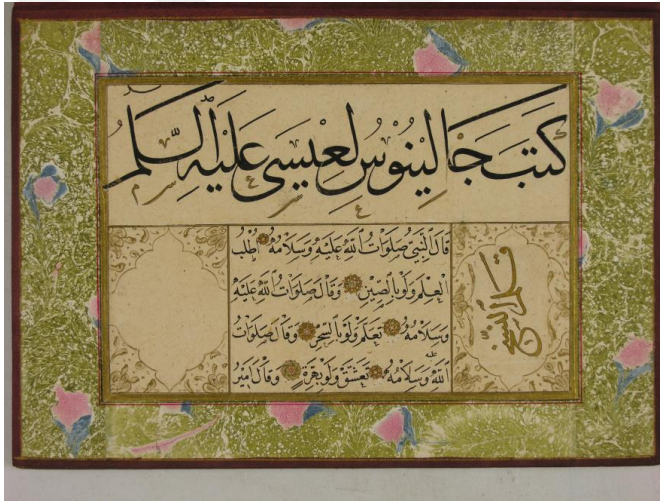 كَتَبَ جَالِينُوسُ لِعِيسَى عَلَيْهِ السَّلَم
قَالَ النَّبِيُّ صَلَوَاتُ اللَّهِ عَلَيْهِ وَسَلَامُهُ اُطْلُبُ
الْعِلْمَ وَلَوْ بِالصِّينِ وَقَالَ صَلَوَاتُ اللَّهِ عَلَيْهِ
وَسَلَامُهُ تَعَلَّمْ وَلَوْ بِالسِّحْرِ وَقَالَ صَلَوَاتُ
اللَّهِ عليه وَسَلَامُهُ تَعَشَّقْ وَلَوْ بِهِرَّةٍ وَقَالَ اَمِيرُ
قال الشيخ